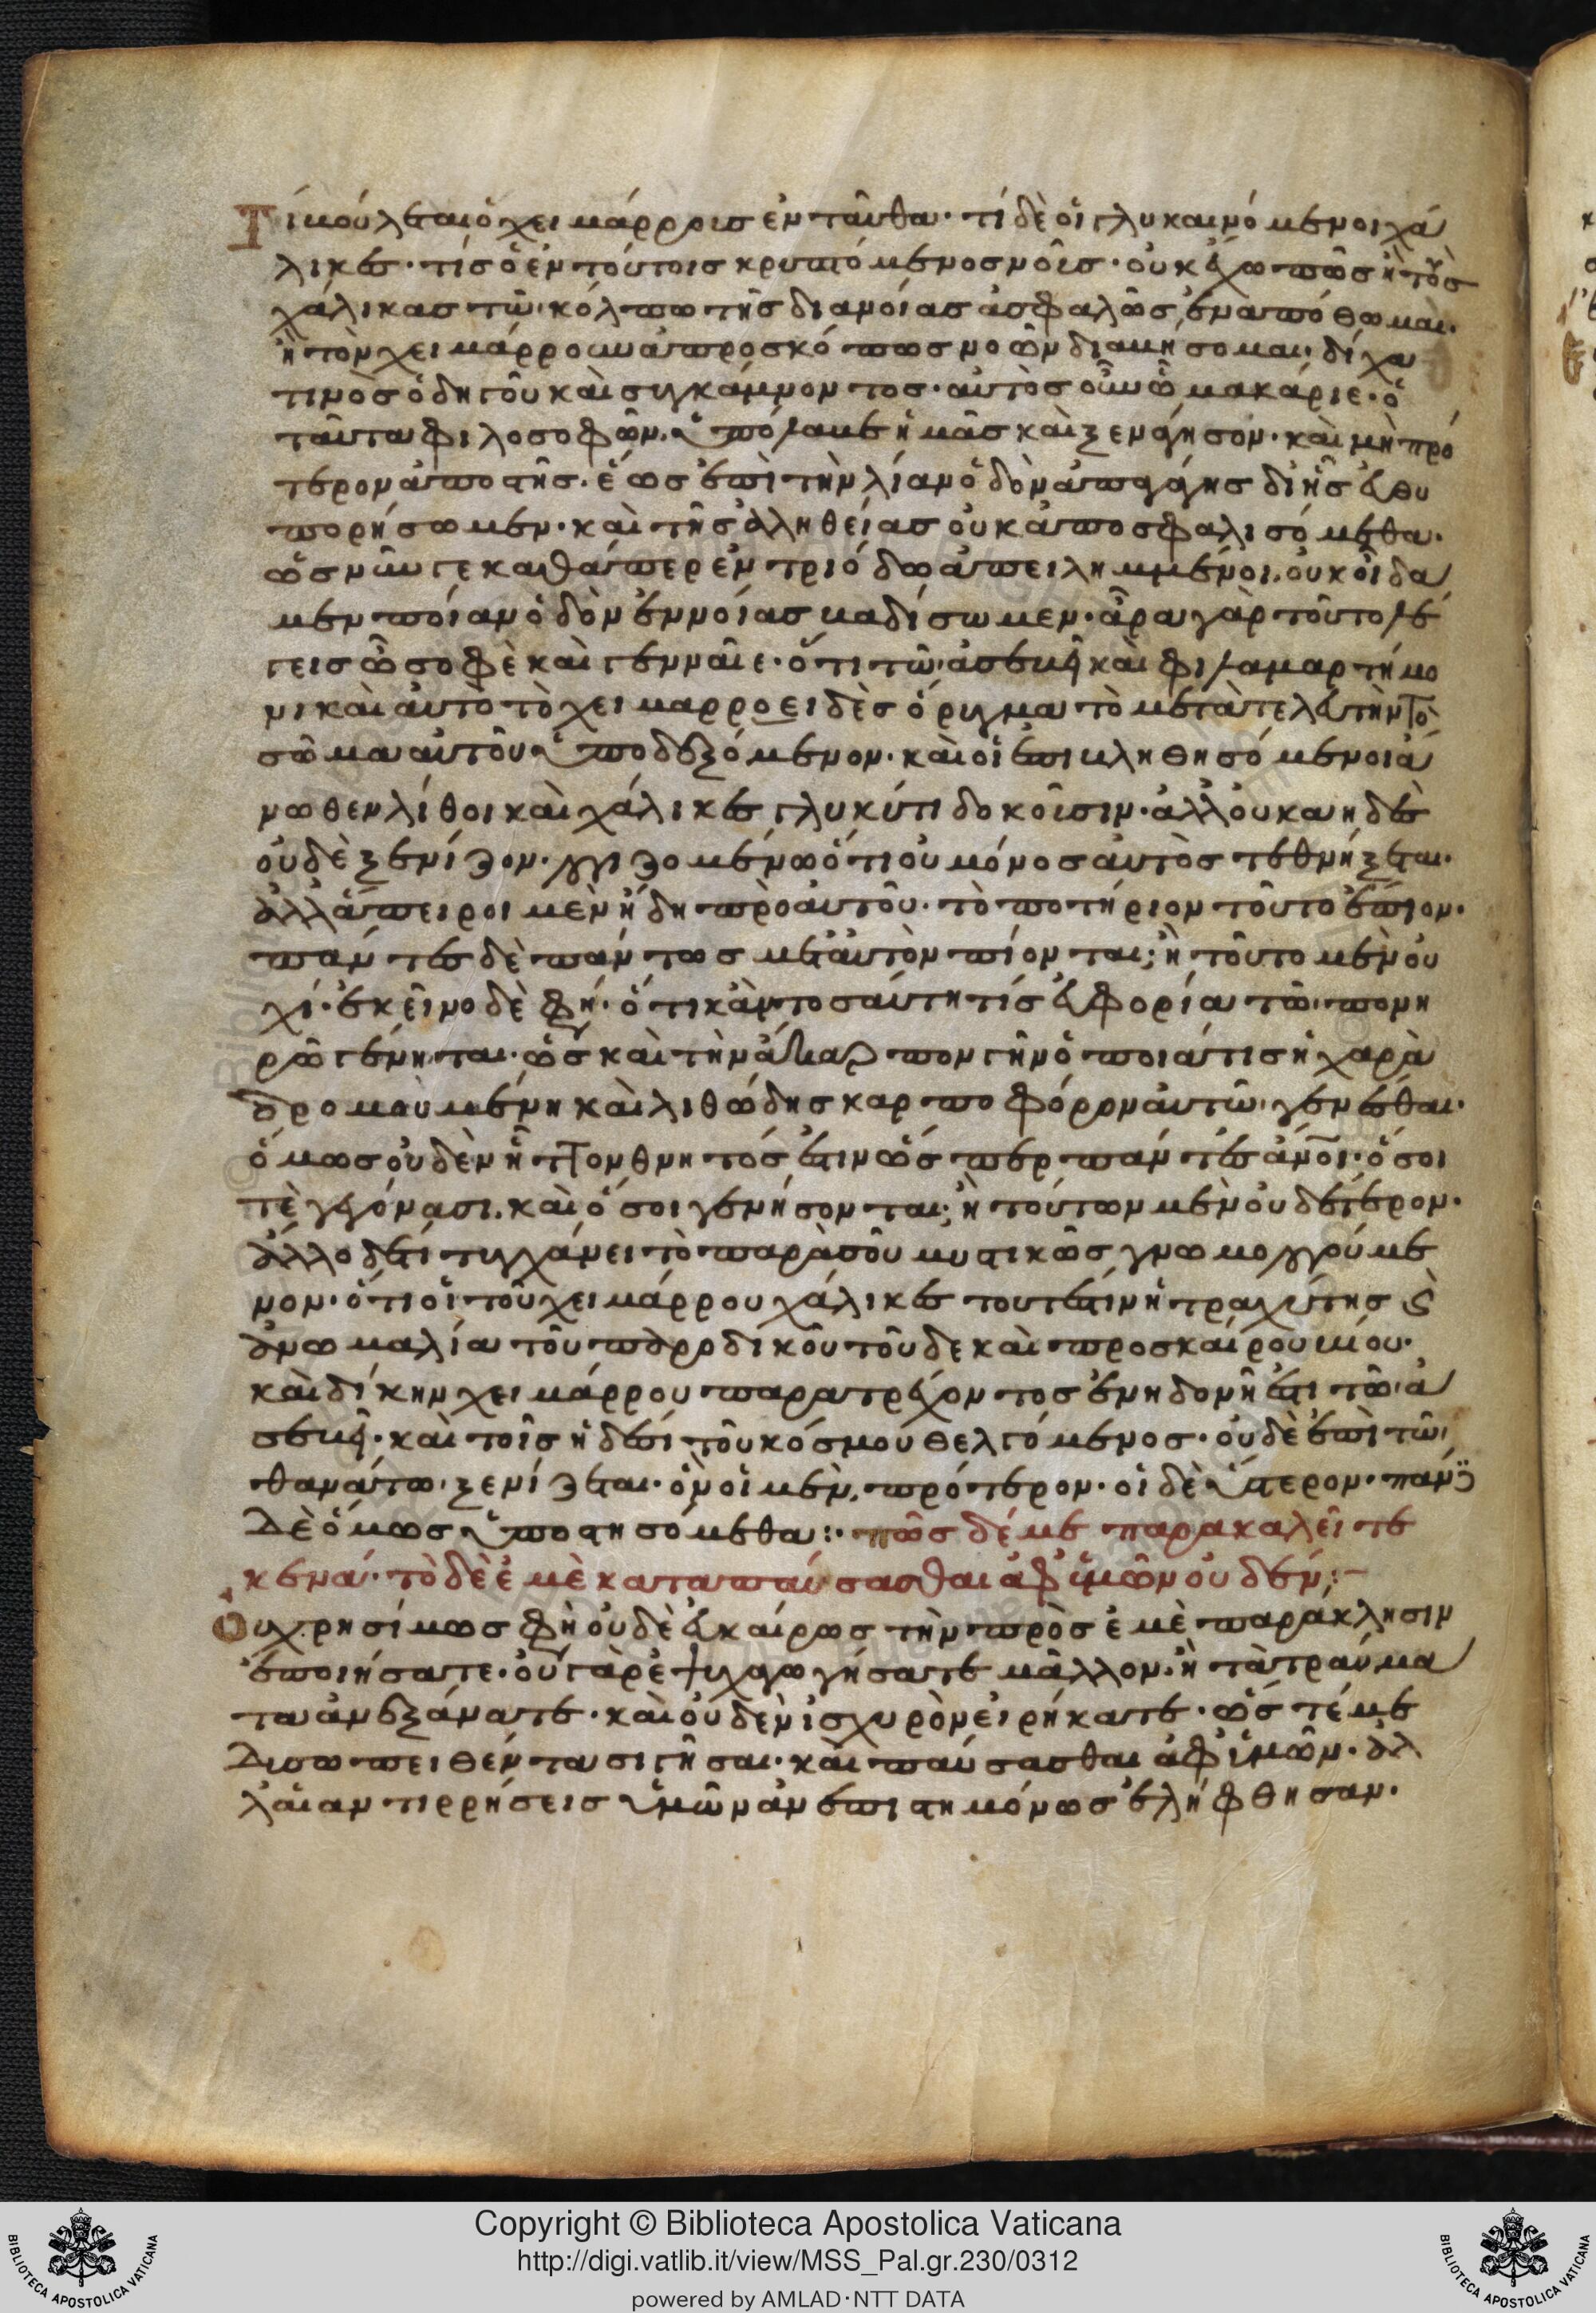 Τί βούλεται ὁ χειμάρροις ἐνταῦθα· τί δὲ οἱ γλυκαινόμενοι χά
λικες· τίς ὁ ἐν τούτοις κρυπτόμενος νοῦς· οὐκ ἔχω πῶς ἢ τοὺς
χάλικας τῷ κόλπω τῆς διανοίας ἀσφαλῶς ἐναπόθωμαι·
ἢ τὸν χειμάρρουν ἀπροσκόπως νοῶν διαβήσομαι· δίχα
τινὸς ὁδηγοῦ καὶ συγκάμνοντος· αὐτὸς οὖν ὦ μακάριε· ὁ
ταῦτα φιλοσοφῶν, ὑπόλαβε ἡμᾶς καὶ ξενάγησον· καὶ μὴ πρό
τερον ἀποστῇς· ἕως ἐπὶ τὴν λίαν ὁδὸν ἀπαγάγῃς δι' ἧς εὐθυ
πορήσωμεν· καὶ τῆς ἀληθείας οὐκ ἀποσφαλισόμεθα·
ὡς νῦν γε καθάπερ ἐν τριόδω ἀπειλημμένοι, οὐκ οἶδα
μεν ποίαν ὁδὸν ἐννοίας βαδίσωμεν· ἆρα γὰρ τοῦτο λέ
γεις ὦ σοφὲ καὶ γενναῖε· ὅτι τῷ ἀσεβεῖ καὶ φιλαμαρτήμο
νι καὶ αὐτὸ τὸ χειμαρροειδὲς ὄρυγμα τὸ μετὰ τελευτὴν τὸ
σῶμα αὐτοῦ ὑποδεξόμενον· καὶ οἱ ἐπικληθησόμενοι ἄ
νωθεν λίθοι καὶ χάλικες γλυκύ τι δοκοῦσιν· ἀλλ' οὐκ ἀηδὲς
οὐδὲ ξενίζον· λογιζομένω ὅτι οὐ μόνος αὐτὸς τεθνήξεται·
ἀλλ' ἄπειροι μὲν ἤδη πρὸ αὐτοῦ· τὸ ποτήριον τοῦτο ἔπιον·
πάντες δὲ πάντως μετ' αὐτὸν πίονται; ἢ τοῦτο μὲν οὐ
χί· ἐκεῖνο δὲ φῄ· ὅτι κἂν τοσαύτη τίς εὐφορία τῷ πονη
ρῷ γένηται· ὡς καὶ τὴν
δρομουμένη καὶ λιθώδης καρποφόρον αὐτῷ γενέσθαι·
ὅμως οὐδὲν ἧττον θνητός ἐστιν ὥσπερ πάντες ἄνοι· ὅσοι
τὲ γεγόνασι, καὶ ὅσοι γενήσονται; ἢ τούτων μὲν οὐδέτερον·
ἄλλο δέ τι τυγχάνει τὸ παρὰ σοῦ μυστικῶς γνωμολογούμε
νον· ὅτι οἱ τοῦ χειμάρρου χάλικες τουτέστιν ἡ τραχύτης καὶ
ἀνωμαλία τοῦ παροδικοῦ τοῦδε καὶ προσκαίρου βίου·
καὶ δίκην χειμάρρου παρατρέχοντος ἐνήδονή ἐστι τῷ ἀ
σεβεῖ· καὶ τοῖς ἡδέσι τοῦ κόσμου θελγόμενος· οὐδὲ ἐπὶ τῷ
θανάτω ξενίζεται· ὃν οἱ μὲν, πρότερον· οἱ δὲ ὕστερον· πάντες
δὲ ὅμως ὑποστησόμεθα:· πῶς δέ με παρακαλεῖτε
κενά· τὸ δὲ ἐμὲ καταπαύσασθαι ἀφ' ὑμῶν οὐδέν;
Οὐ χρησίμως φὴ οὐδὲ εὐκαίρως τὴν πρὸς ἐμὲ παράκλησιν
ἐποιήσατε· οὐ γὰρ ἐψυχαγωγήσατε μᾶλλον, ἢ τὰ τραύμα
τα ἀνεξάνατε· καὶ οὐδὲν ἰσχυρὸν εἰρήκατε· ὥς τέ με
δισωπειθέντα σιγῆσαι· καὶ παύσασθαι ἀφ' ὑμῶν· ἀλ
λ' αἱ ἀντιρρήσεις ὑμῶν ἀνεπιστημόνως ἐλήφθησαν·
Copyright © Biblioteca Apostolica Vaticana
http://digi.vatlib.it/view/MSS_Pal.gr.230/0312
powered by AMLAD·NTT DATA
BIBLIOTECA APOSTOLICA VATICANA
BIBLIOTECA APOSTOLICA VATICANA